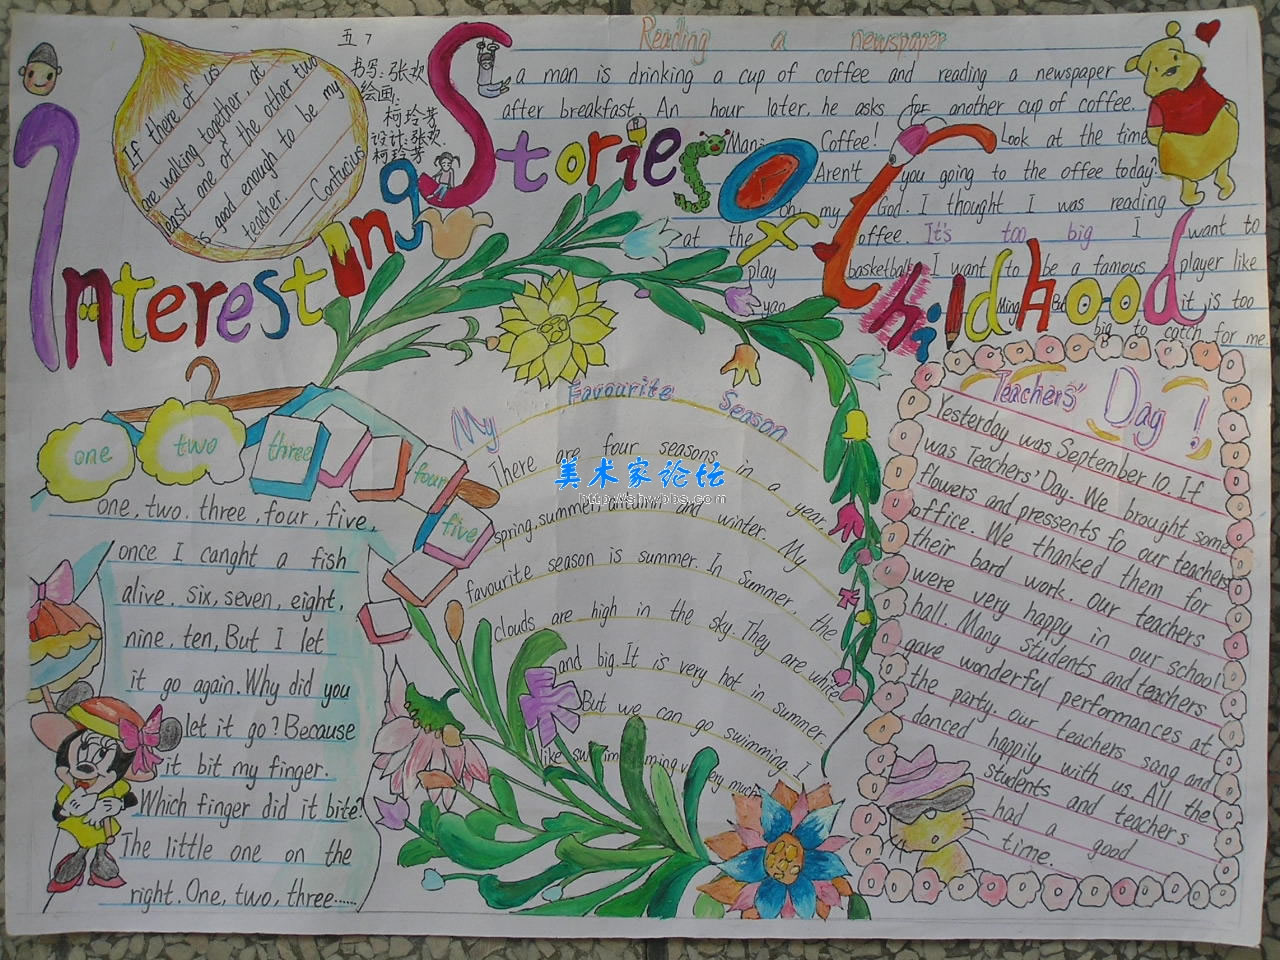 五7
书写:张欢
绘画:
柯玲芳
设计:张欢
柯玲芳
Interesting Stories Of Childhood
If there of us
are walking together, at
least one of the other two
is good enough to be my
teacher.
——Confucius
Reading a newspaper
a man is drinking a cup of coffee and reading a newspaper
after breakfast. An hour later, he asks for another cup of coffee.
Man: Coffee! Look at the time
Aren't you going to the offee today?
oh, my God. I thought I was reading
at the offee. It's too big I want to
play basketball. I want to be a famous player like
yao Ming. But it is too
big to catch for me.
one two three four five
one, two, three, four, five,
once I canght a fish
alive. six, seven, eight,
nine, ten, But I let
it go again. Why did you
let it go? Because
it bit my finger.
Which finger did it bite?
The little one on the
right. One, two, three......
My Favourite Season
There are four seasons in a year,
spring, summer, autamn and winter. My
favourite season is summer. In Summer, the
clouds are high in the sky. They are white
and big. It is very hot in summer.
But we can go swimming. I
like very much
美术家论坛
http://shwbbs.com
Teachers' Day!
Yesterday was September 10. If
was Teachers' Day. We brought some
flowers and pressents to our teachers
office. We thanked them for
their bard work. our teachers
were very happy in our school
hall. Many students and teachers
gave wonderful performances at
the party. our teachers song and
danced happily with us. All the
students and teachers
had a good
time.